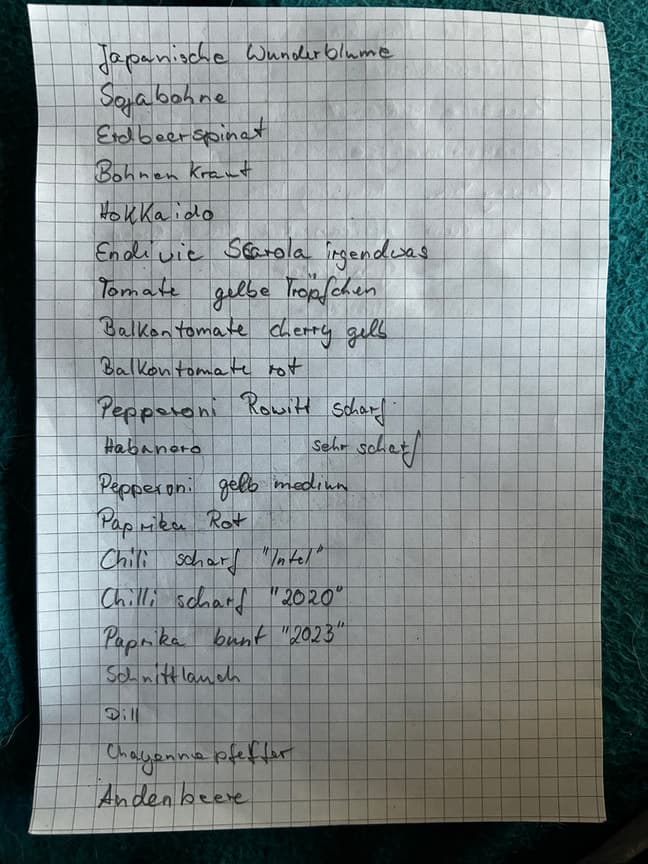 Japanische Wunderblume
Sojabohne
Erdbeerspinat
Bohnenkraut
Hokkaido
Endivie Scarola irgendwas
Tomate gelbe Tröpfchen
Balkontomate cherry gelb
Balkontomate rot
Pepperoni scharf
Habanero sehr scharf
Pepperoni gelb medium
Paprika Rot
Chili scharf "Intel"
Chilli scharf "2020"
Paprika bunt "2023"
Schnittlauch
Dill
Chayennepfeffer
Andenbeere